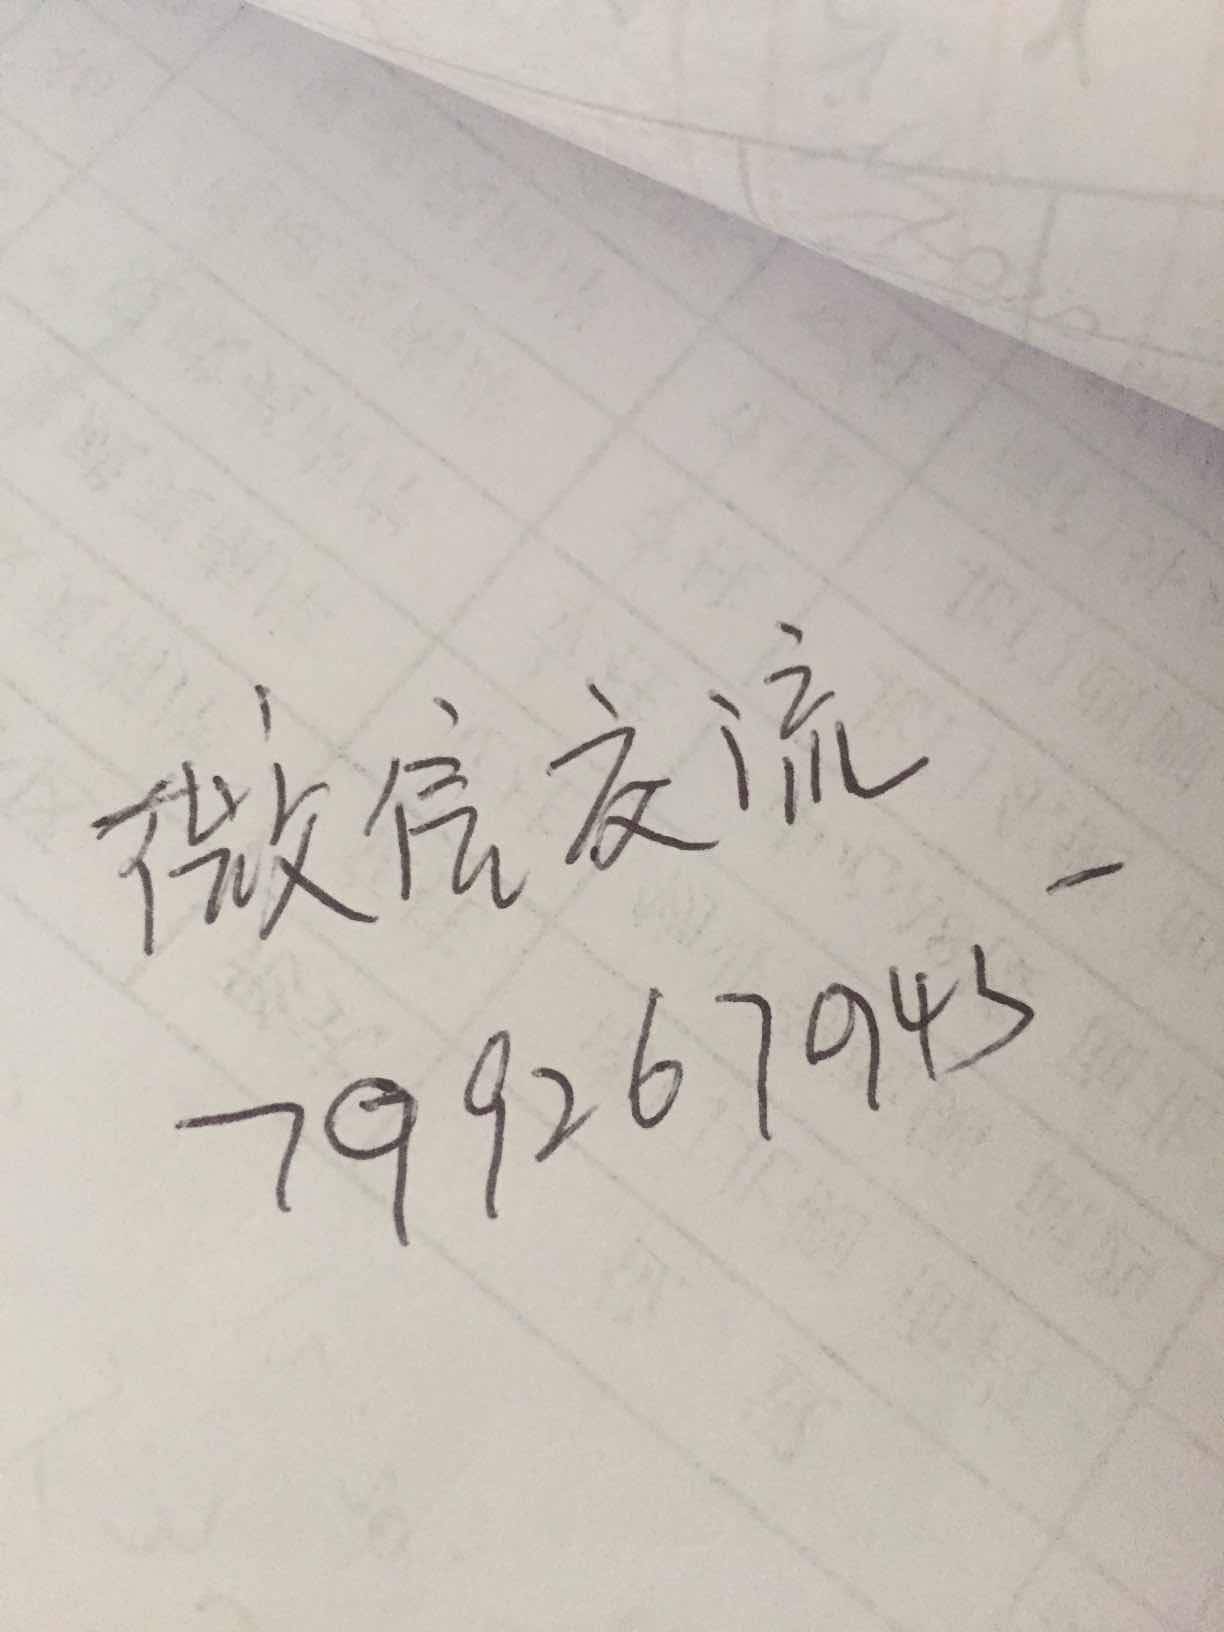 微信交流
799267945